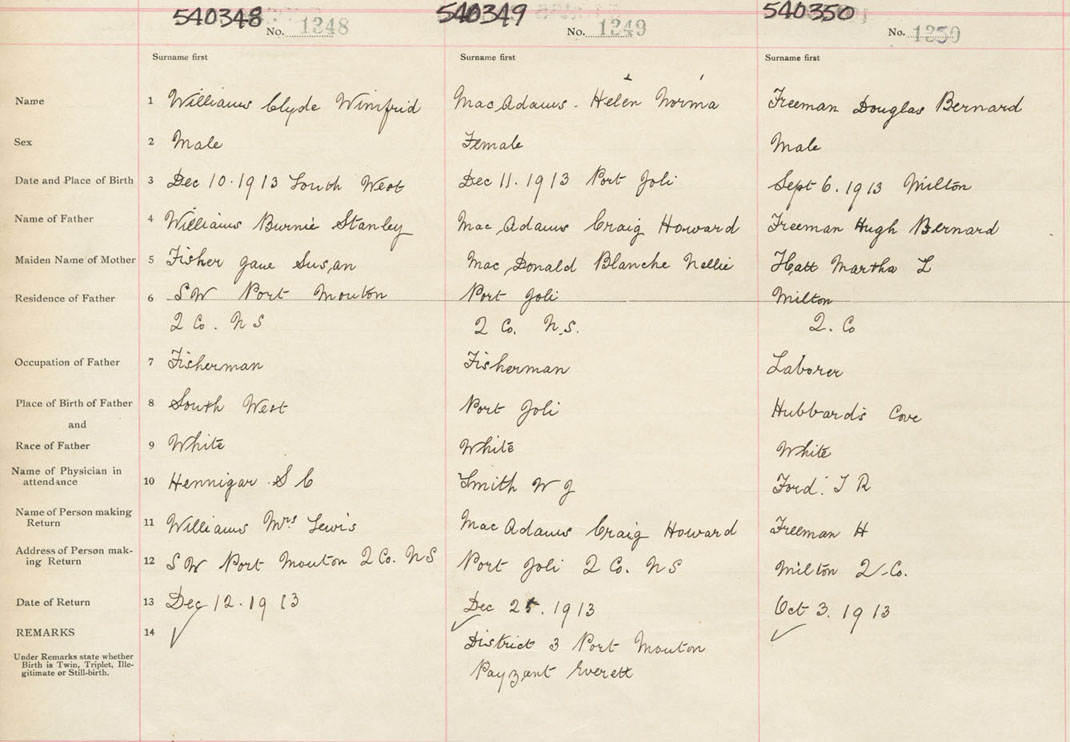 540348 540349 540350
No. 1248 No. 1249 No. 1250
Surname first Surname first Surname first
2 1
Name 1 Williams Clyde Winifrid MacAdams. Helen Norma Freeman Douglas Bernard
Sex 2 Male Female Male
Date and Place of Birth 3 Dec 10.1913 South West Dec 11.1913 Port Joli Sept 6.1913 Milton
Name of Father 4 Williams Burnie Stanley MacAdams Craig Howard Freeman Hugh Bernard
Maiden Name of Mother 5 Fisher Jane Susan MacDonald Blanche Nellie Hatt Martha L
Residence of Father 6 SW Port Mouton Port Joli Milton
Q Co. N S Q Co. N.S. Q. Co
Occupation of Father 7 Fisherman Fisherman Laborer
Place of Birth of Father 8 South West Port Joli Hubbard's Cove
and
Race of Father 9 White White White
Name of Physician in
attendance 10 Hennigar S C Smith W J Ford. T R
Name of Person making
Return 11 Williams Mrs Lewis MacAdams Craig Howard Freeman H
Address of Person mak-
ing Return 12 SW Port Mouton Q Co. NS Port Joli Q Co. NS Milton Q. Co.
Date of Return 13 Dec 12.1913 Dec 25.1913 Oct 3.1913
REMARKS 14 ✓ ✓ District 3 Port Mouton ✓
Under Remarks state whether Payzant Everett
Birth is Twin, Triplet, Ille-
gitimate or Still-birth.